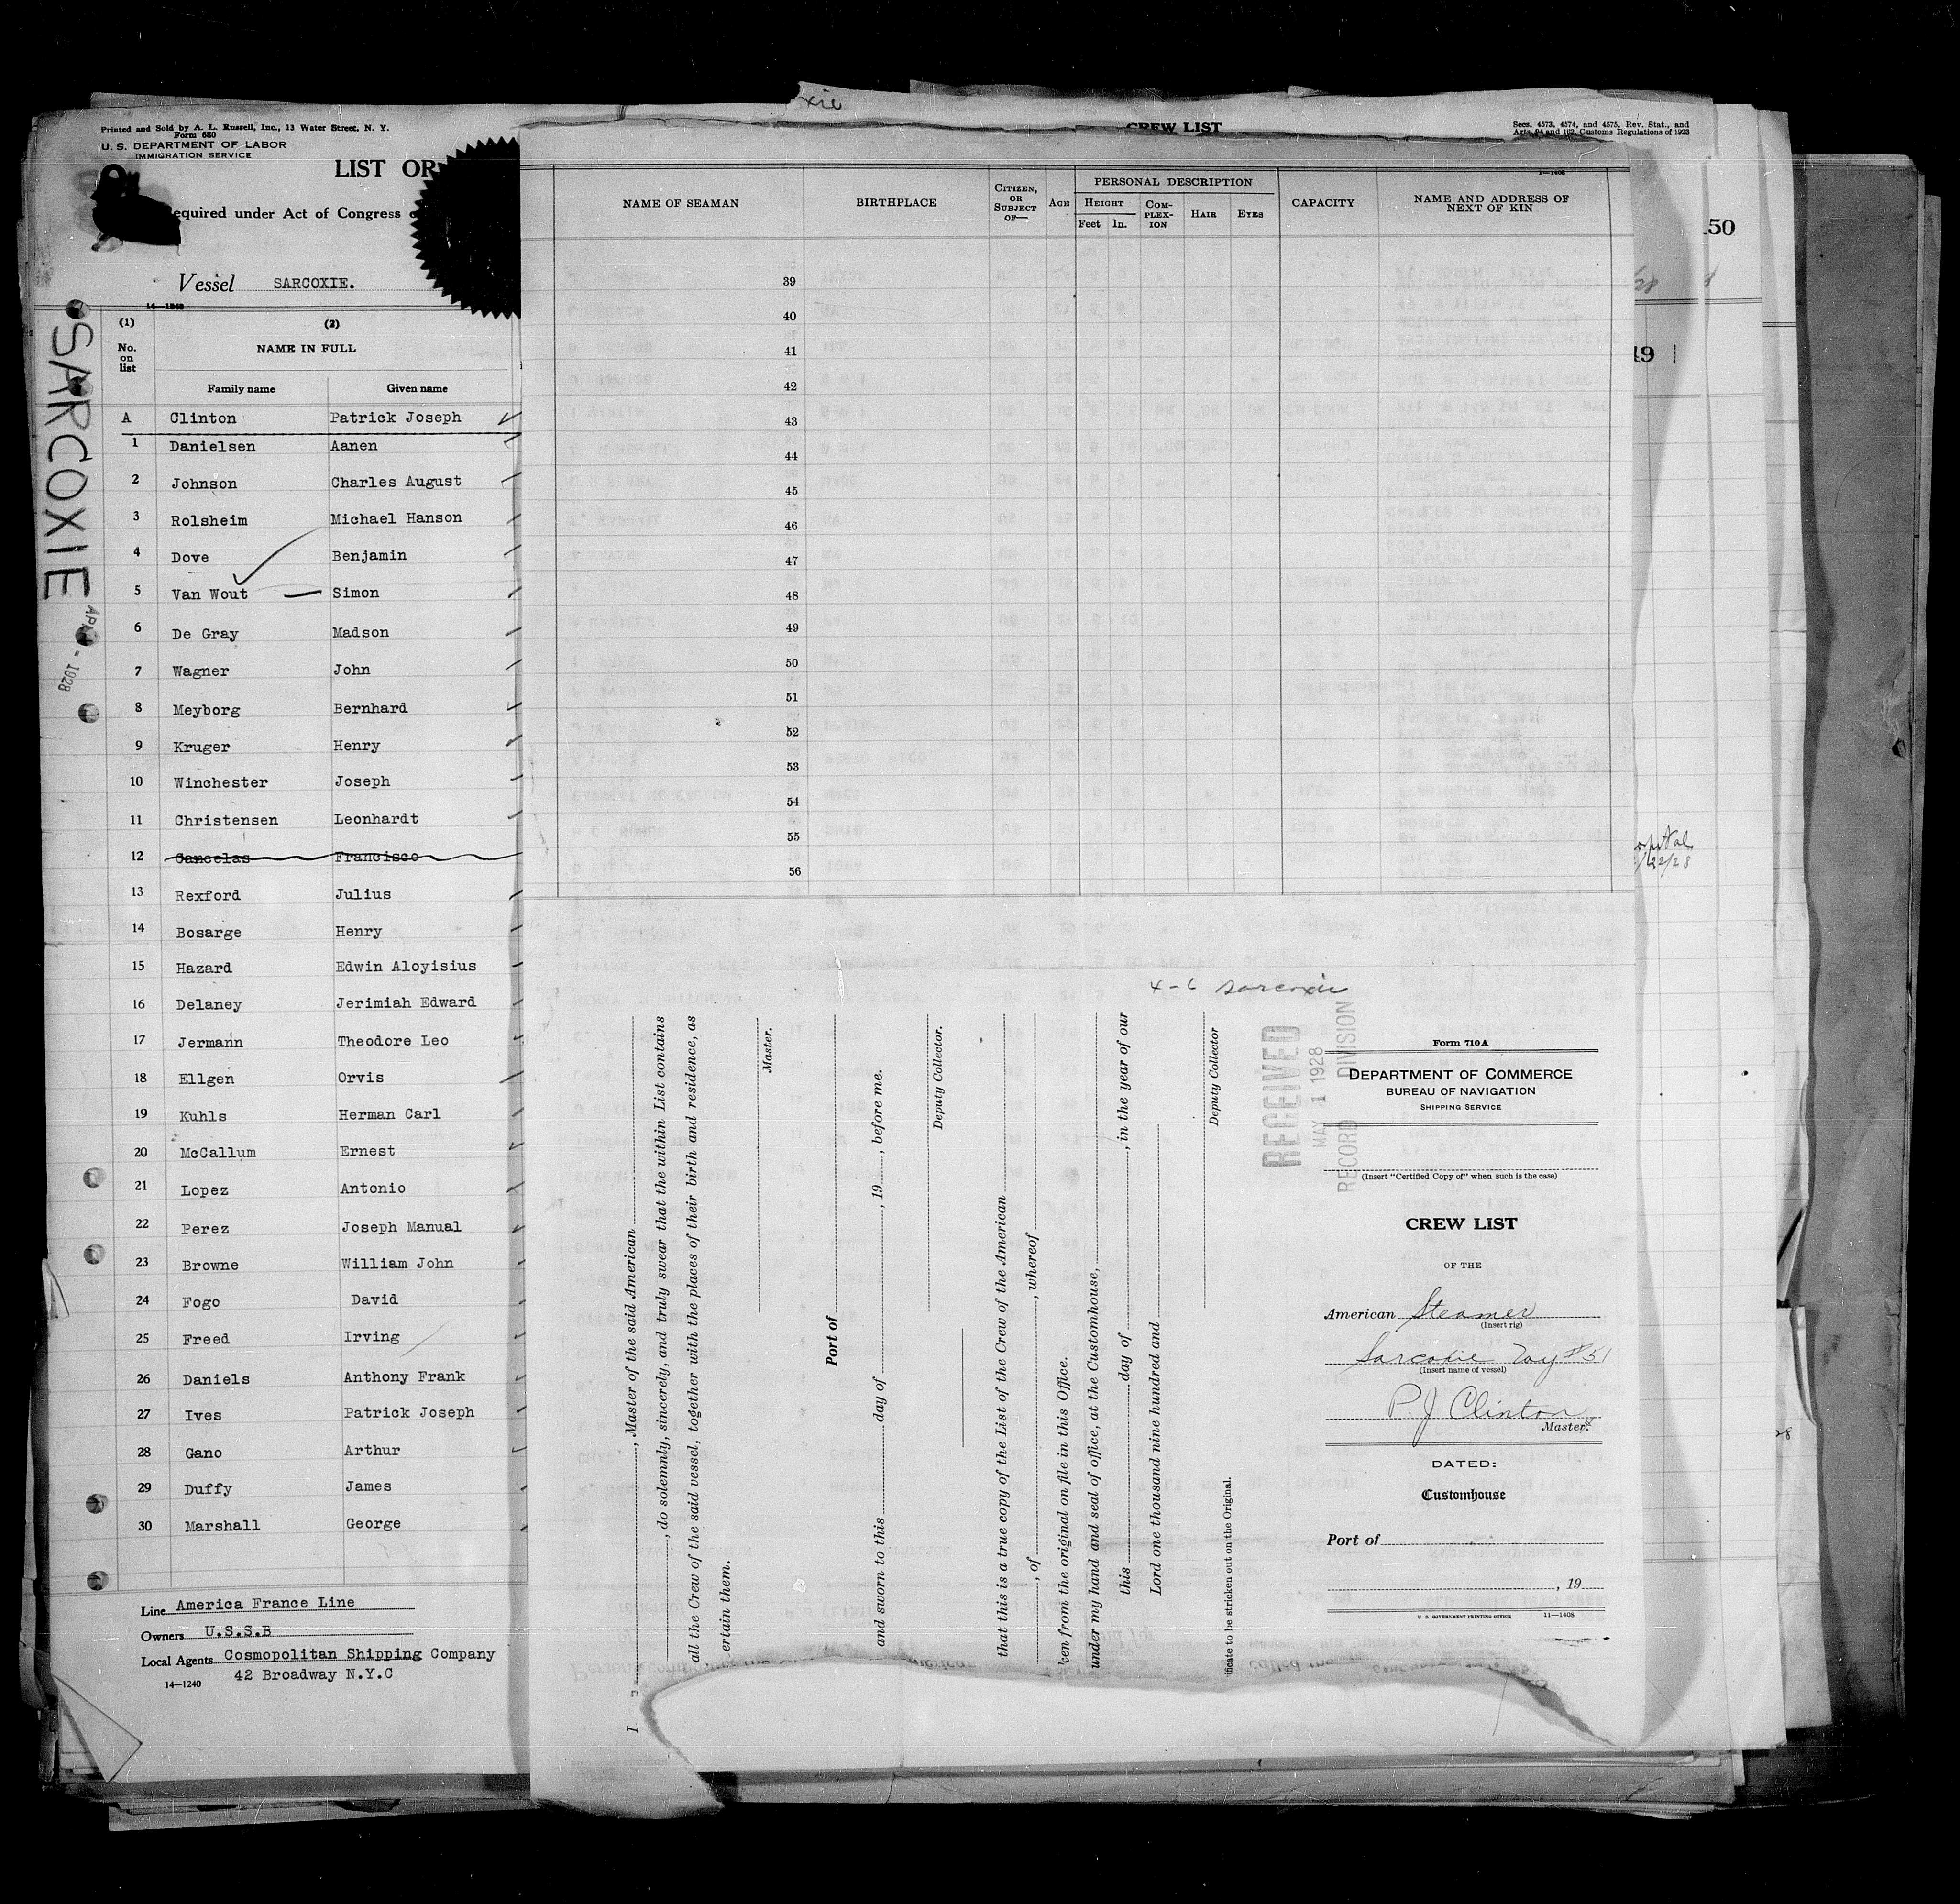 Printed and Sold by A. L. Russell, Inc., 13 Water Street, N. Y.
Form 680
U. S. DEPARTMENT OF LABOR
IMMIGRATION SERVICE
LIST OR
equired under Act of Congress
Vessel SARCOXIE.
14—1240
SARCOXIE
1928
(1) (2)
No. on list
NAME IN FULL
Family name Given name
A Clinton Patrick Joseph
1 Danielsen Aanen
2 Johnson Charles August
3 Rolsheim Michael Hanson
4 Dove Benjamin
5 Van Wout Simon
6 De Gray Madson
7 Wagner John
8 Meyborg Bernhard
9 Kruger Henry
10 Winchester Joseph
11 Christensen Leonhardt
12 Cancelas Francisco
13 Rexford Julius
14 Bosarge Henry
15 Hazard Edwin Aloyisius
16 Delaney Jerimiah Edward
17 Jermann Theodore Leo
18 Ellgen Orvis
19 Kuhls Herman Carl
20 McCallum Ernest
21 Lopez Antonio
22 Perez Joseph Manual
23 Browne William John
24 Fogo David
25 Freed Irving
26 Daniels Anthony Frank
27 Ives Patrick Joseph
28 Gano Arthur
29 Duffy James
30 Marshall George
Line America France Line
Owners U.S.S.B
Local Agents Cosmopolitan Shipping Company
42 Broadway N.Y.C
14—1240
xie
CREW LIST
Secs. 4573, 4574, and 4575, Rev. Stat., and
Arts. 94 and 162, Customs Regulations of 1923
NAME OF SEAMAN
BIRTHPLACE
CITIZEN, OR SUBJECT OF—
AGE
PERSONAL DESCRIPTION
HEIGHT
Feet In.
COM-PLEX-ION
HAIR
EYES
CAPACITY
NAME AND ADDRESS OF NEXT OF KIN
39
40
41
42
43
44
45
46
47
48
49
50
51
52
53
54
55
56
50
49
22/28
4-6 Sarcoxie
I , Master of the said American
, do solemnly, sincerely, and truly swear that the within List contains
all the Crew of the said vessel, together with the places of their birth and residence, as
ertain them.
Master.
Port of
and sworn to this day of , 19 , before me.
Deputy Collector.
that this is a true copy of the List of the Crew of the American
, of , whereof
en from the original on file in this Office.
under my hand and seal of office, at the Customhouse,
this day of , in the year of our
Lord one thousand nine hundred and
Deputy Collector
ificate to be stricken out on the Original.
RECEIVED
MAY 1 1928
RECORD DIVISION
Form 710A
DEPARTMENT OF COMMERCE
BUREAU OF NAVIGATION
SHIPPING SERVICE
(Insert "Certified Copy of" when such is the case)
CREW LIST
OF THE
American Steamer
(Insert rig)
Sarcoxie Voy #51
(Insert name of vessel)
P. J. Clinton
Master.
DATED:
Customhouse
Port of
, 19
U. S. GOVERNMENT PRINTING OFFICE 11—1408